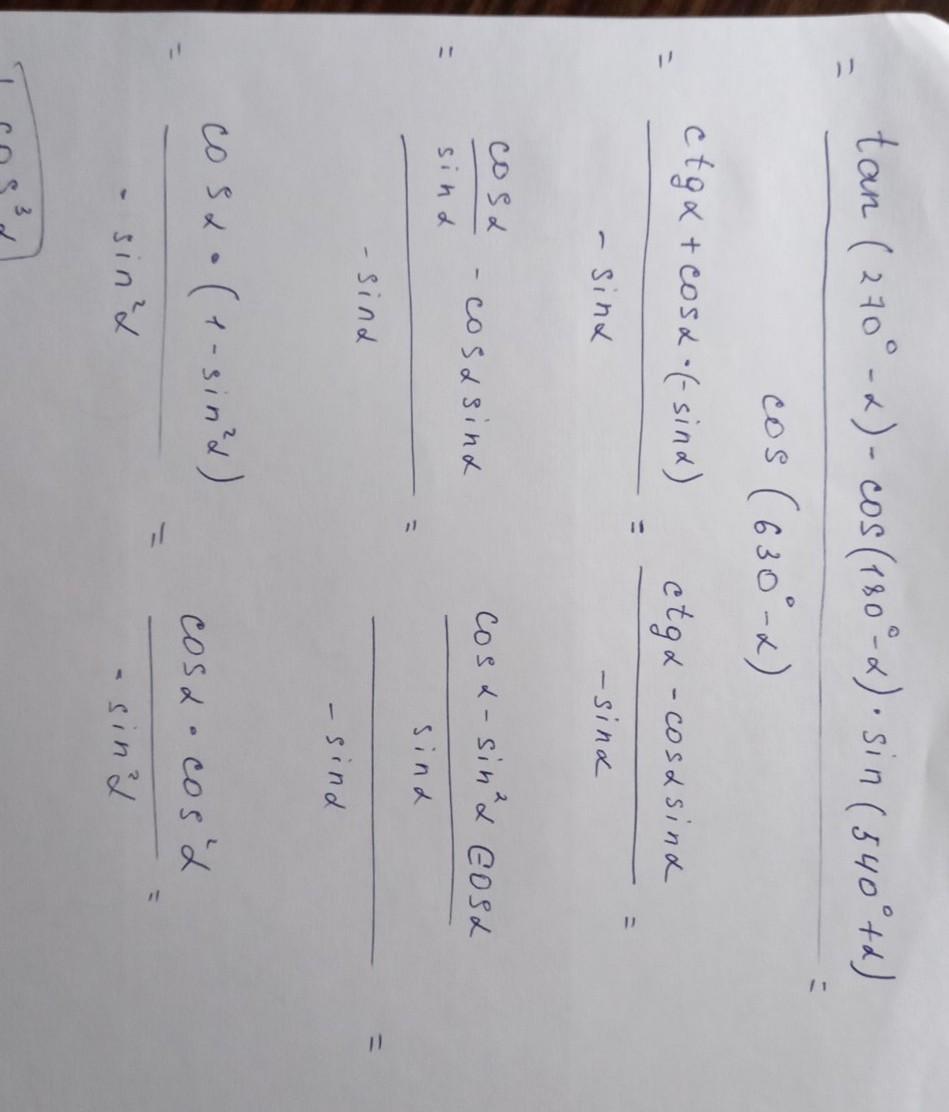 = tan(270°-α)-cos(180°-α)·sin(540°+α) =
cos(630°-α)
= ctgα+cosα·(-sinα) = ctgα-cosαsinα =
-sinα -sinα
= cosα/sinα - cosαsinα = cosα-sin²αcosα =
sinα
-sinα -sinα
= cosα·(1-sin²α) = cosα·cos²α =
-sin²α -sin²α
cos³α